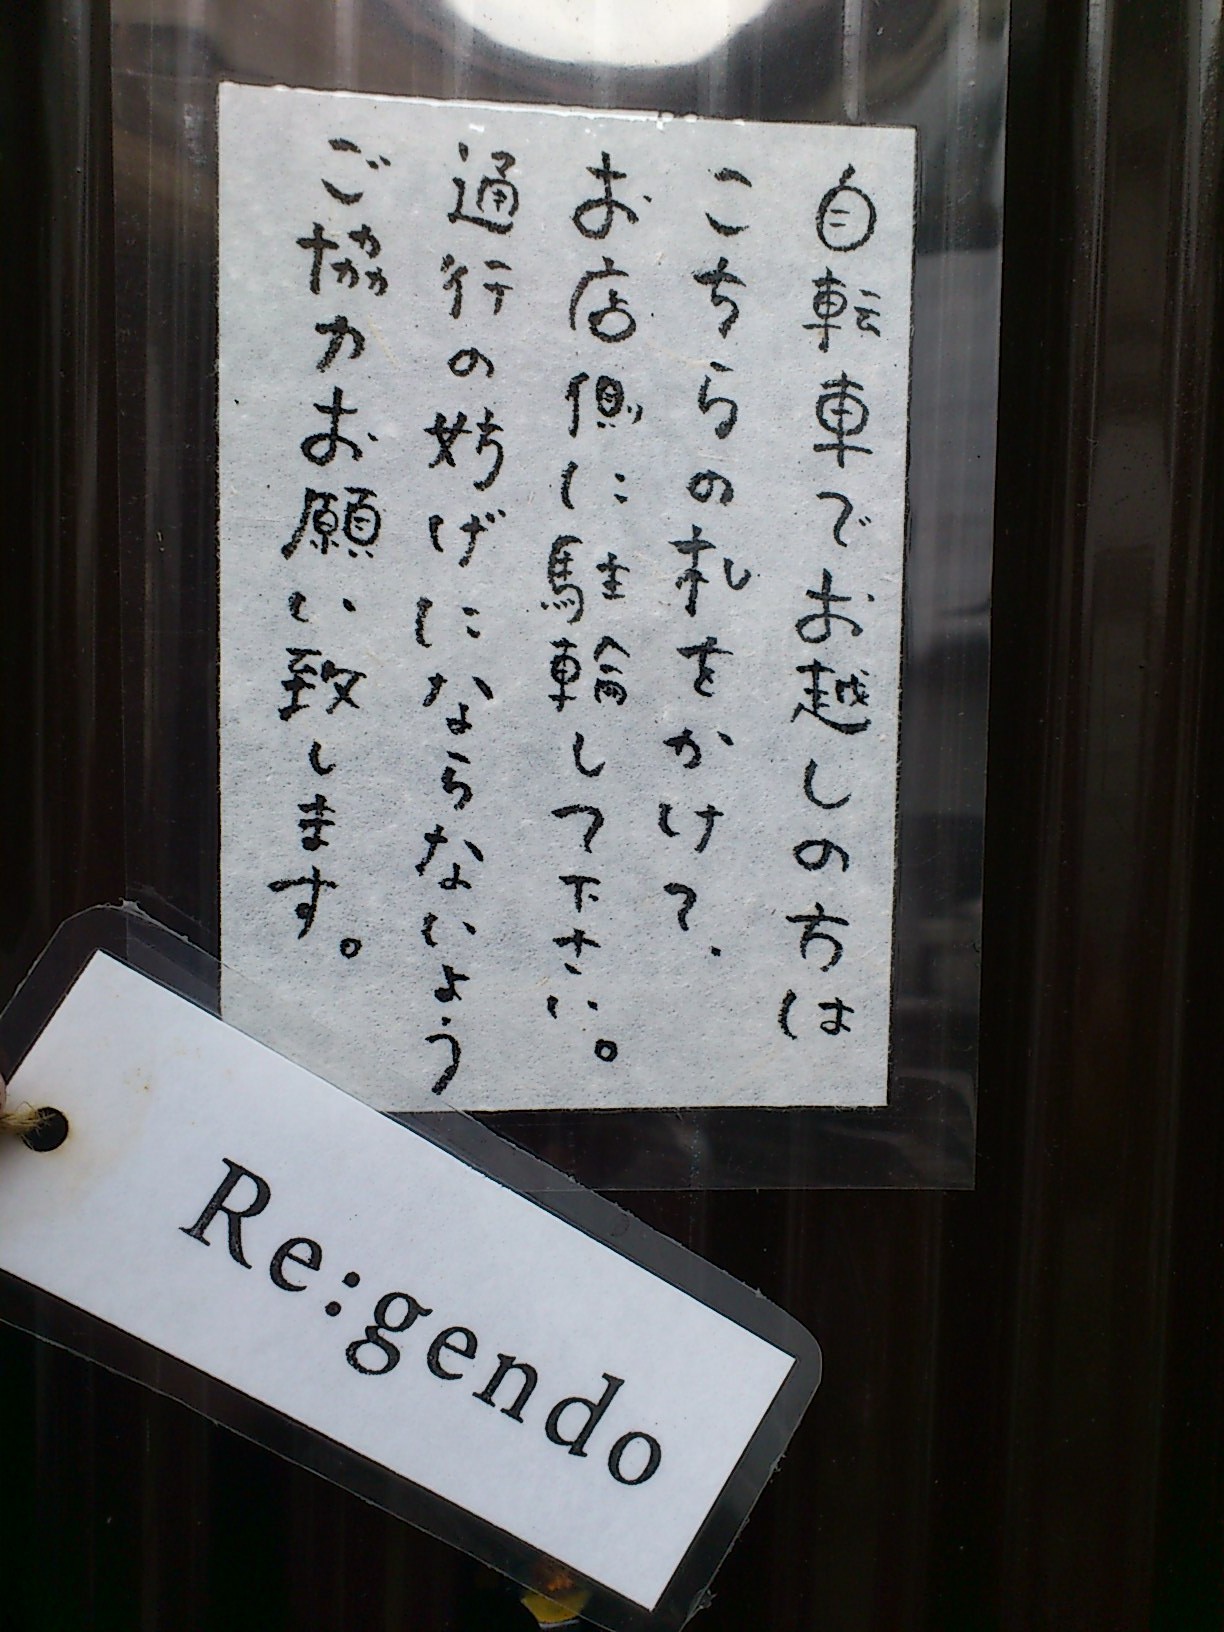 自転車でお越しの方は
こちらの札をかけて、
お店側に駐輪して下さい。
通行の妨げにならないよう
ご協力お願い致します。
Re:gendo